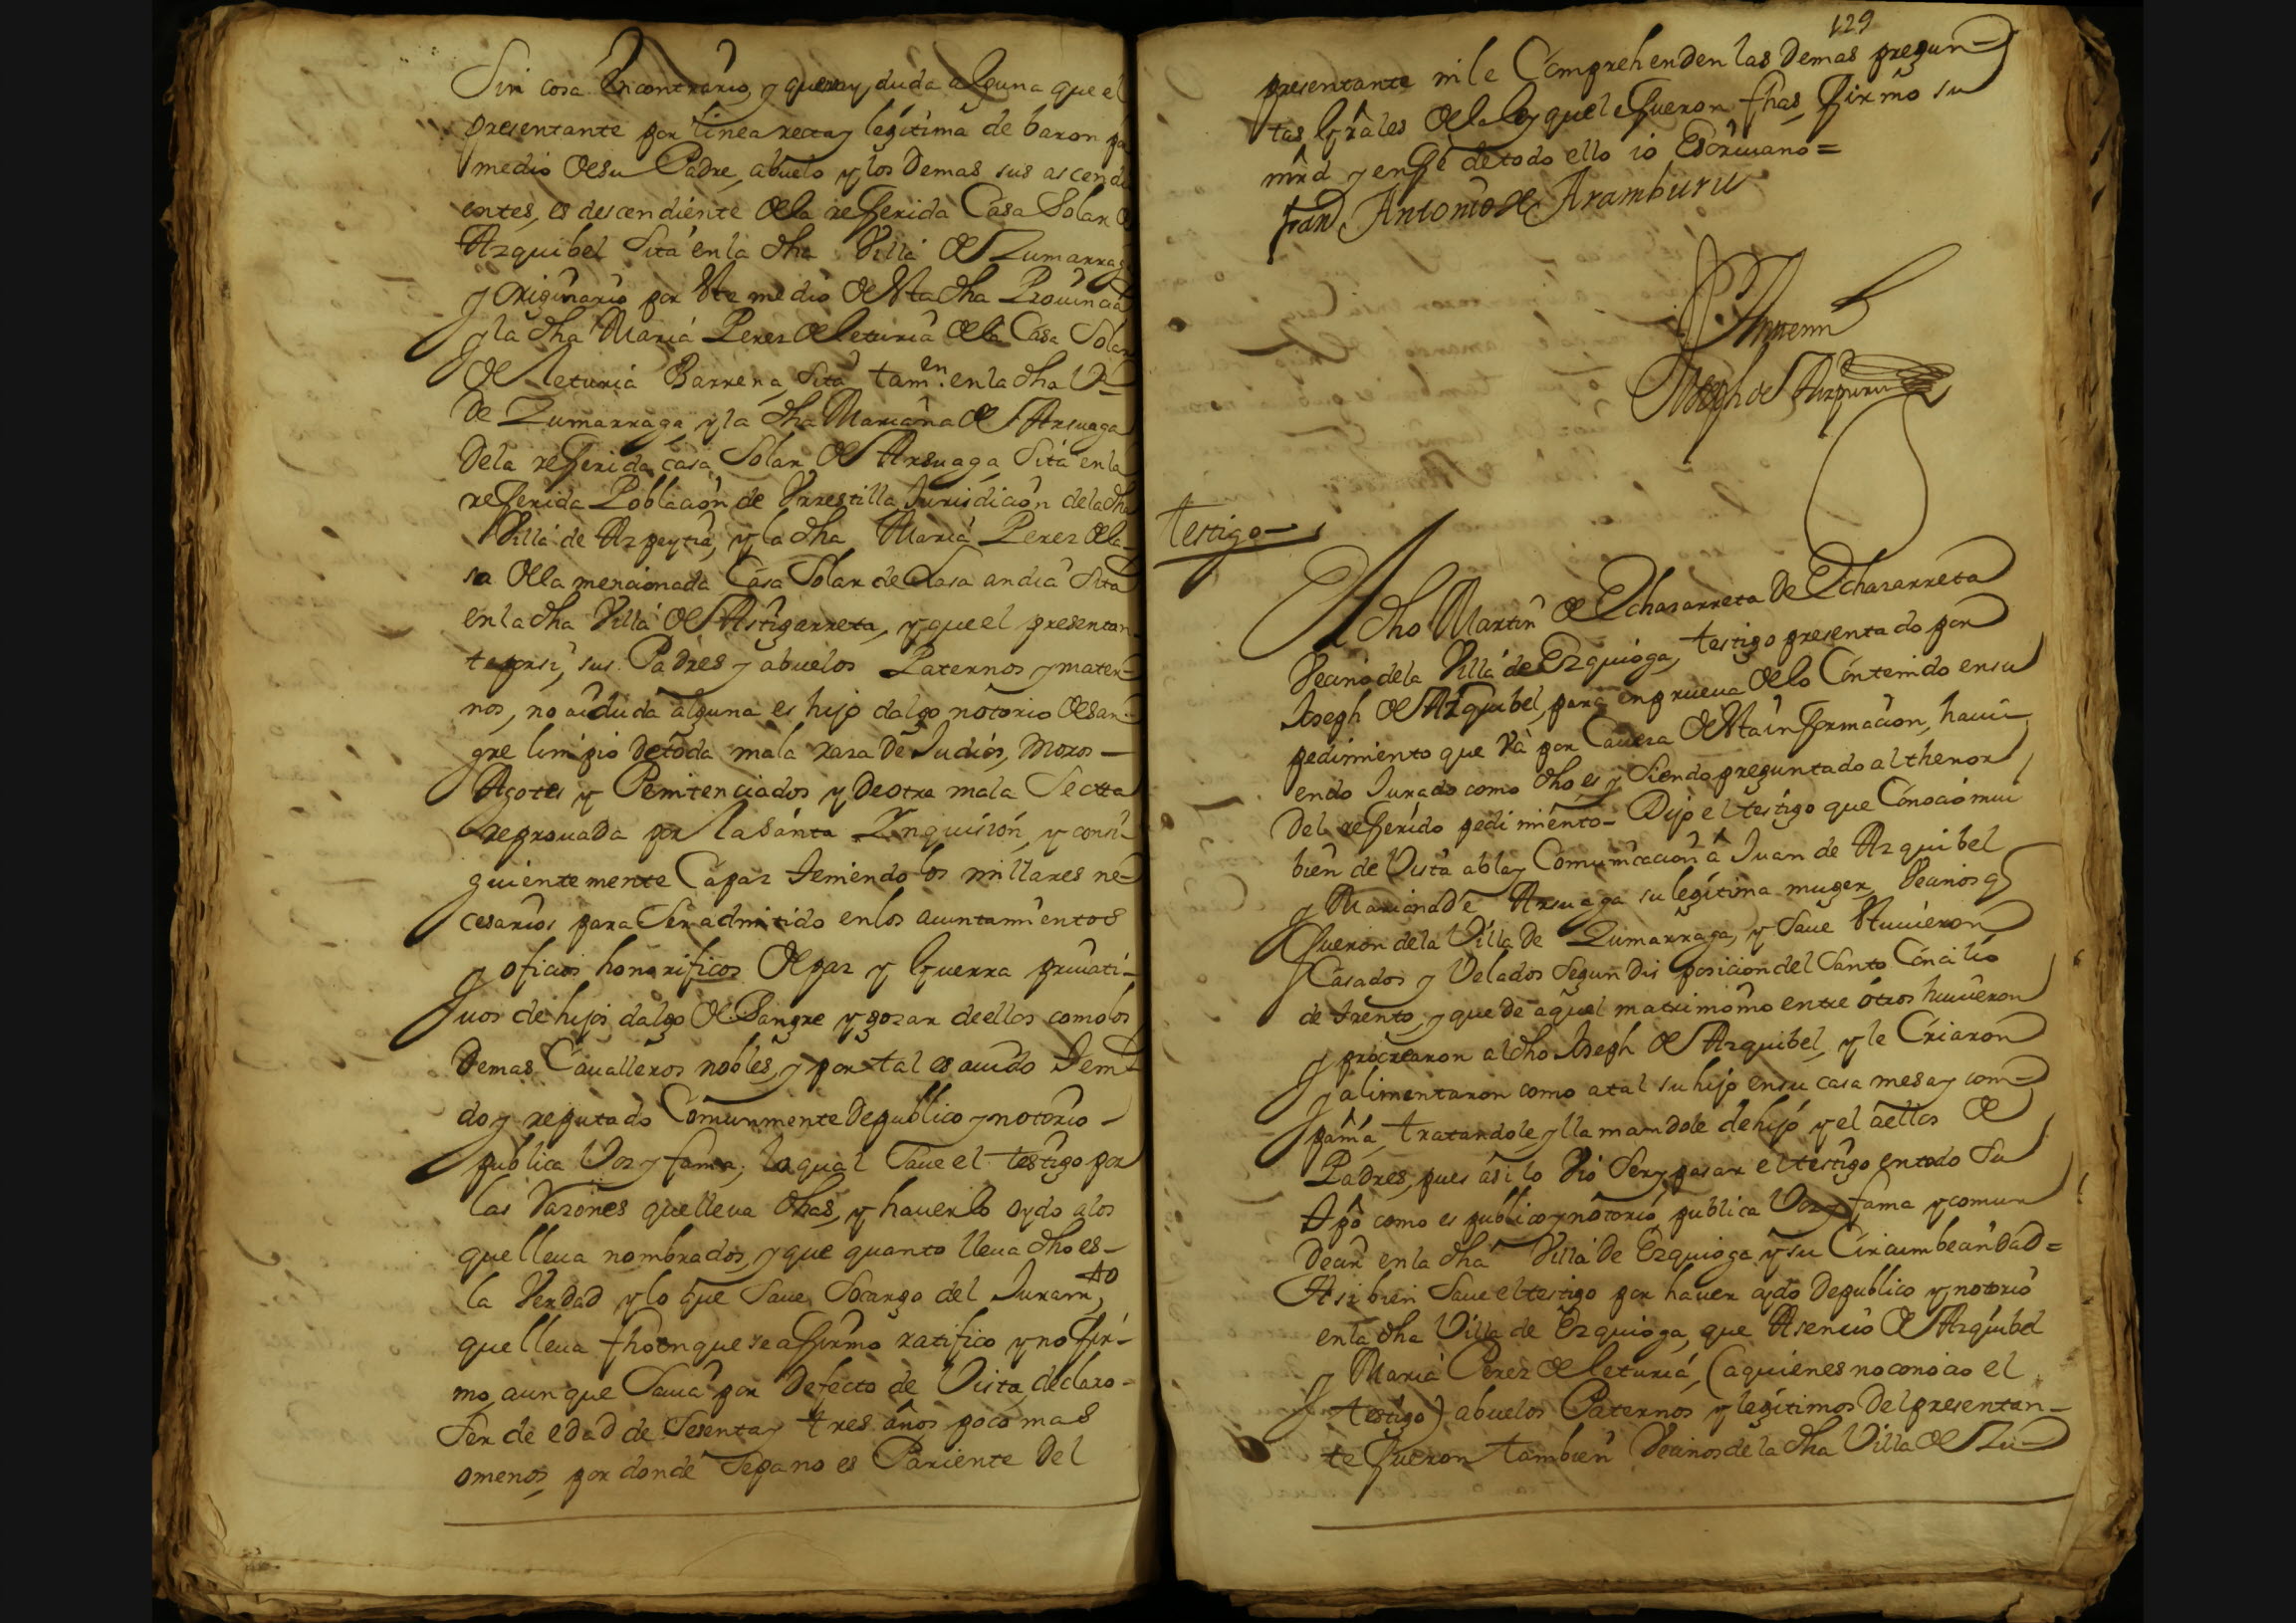 Sin cosa en contrario, y que no ay duda alguna que el
presentante por linea recta y legitima de baron por
medio de su Padre, abuelo y los demas sus ascendi
entes, es descendiente de la refferida Casa Solar de
Azquibel Sita en la dha Villa de Zumarraga
y originario por este medio de esta dha Provincia
y la dha Maria Perez de leturia de la Casa Solar
de leturia Barrena, Sita tamen. en la dha Va
de Zumarraga, y la dha Mariana de Arsuaga
de la refferida casa Solar de Arsuaga Sita en la
refferida Poblacion de Urrestilla Jurisdicion de la dha
Villa de Azpeytia, y la dha Maria Perez de la-
sa de la mencionada Casa Solar de Lasa andia Sita
en la dha Villa de Astigarreta, y que el presentan-
te por si, sus Padres y abuelos Paternos y mater-
nos, no ai duda alguna es hijo dalgo notorio de san-
gre limpio de toda mala rasa de Judios, Moros
Agotes y Penitenciados y de otra mala Secta
reprovada por la Santa Ynquision, y consi-
guientemente Capaz teniendo los millares ne-
cesarios para Ser admitido en los aiuntamientos
y oficios honorificos de paz y Guerra privati-
vos de hijos dalgo de Sangre y gozar de ellos como los
demas Cavalleros nobles, y por tal es avido teni-
do y reputado Comunmente de publico y notorio
publica Voz y fama; lo qual Save el testigo por
las Razones que lleva dhas, y haverlo oydo a los
que lleva nombrados, y que quanto lleva dho es
la Verdad y lo que Save Socargo del Juramto,
que lleva fho en que se affirmo ratifico y no ffir-
mo, aunque Savia por defecto de Vista, declaro
Ser de edad de Sesenta y tres años poco mas
o menos, por donde Sepa no es Pariente del
129
presentante ni le Comprehenden las demas pregun-
tas Grales de la ley que le fueron fhas, ffirmo su
mrd y en ffe de todo ello io Escrivano =
Fran Antonio de Aramburu
Ante mi
Joseph de Aizpuru
testigo
El dho Martin de Echasarreta de Echasarreta
Vecino de la Villa de Ezquioga, testigo presentado por
Joseph de Azquibel, para en prueva de lo Contenido en su
pedimiento que va por Cavesa de esta informacion, havi-
endo Jurado como dho es y Siendo preguntado al thenor
del refferido pedimiento- Dijo el testigo que Conocio mui
bien de Vista abla y Comunicacion â Juan de Azquibel
y Mariana de Arsuaga su legitima muger, Vecinos q
fueron de la Villa de Zumarraga, y Save estuvieron
Casados y Velados Segun disposicion del Santo Concilio
de trento, y que de aquel matrimonio entre otros huvieron
y procrearon al dho Joseph de Azquibel, y le Criaron
y alimentaron como a tal su hijo en su casa mesa y com-
pañia, tratandole y llamandole de hijo y el a ellos de
Padres, pues asi lo Vio Ser y pasar el testigo en todo Su
tpo como es publico y notorio, publica Voz y fama y comun
decir en la dha Villa de Ezquioga y su Circumbecindad=
Asi bien Save el testigo por haver oydo de publico y notorio
en la dha Villa de Ezquioga, que Asencio de Azquibel
y Maria Perez de leturia, (a quienes no conocio el
testigo) abuelos Paternos y legitimos del presentan-
te fueron tambien Vecinos de la dha Villa de Zu-